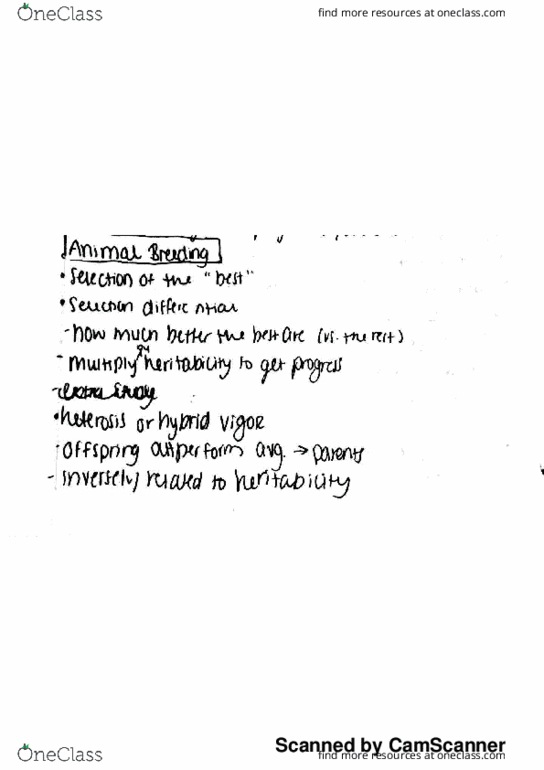 OneClass
find more resources at oneclass.com
Animal Breeding
• Selection of the "best"
• Selection differential
- how much better the best are (vs. the rest)
- multiply by heritability to get progress
• heterosis or hybrid vigor
- offspring outperform avg. → parents
- inversely related to heritability
Scanned by CamScanner
OneClass
find more resources at oneclass.com